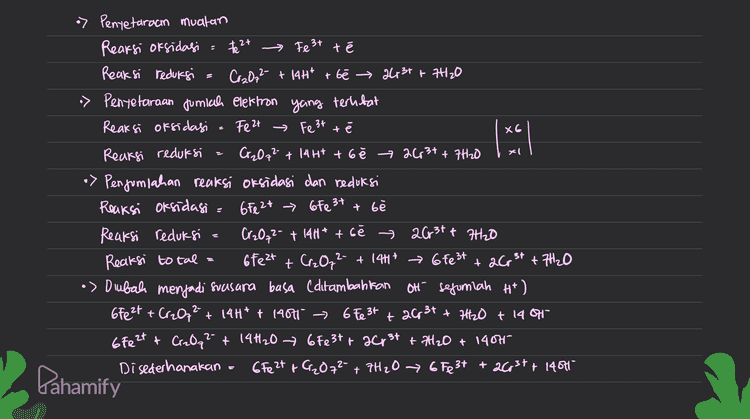 •> Penyetaraan muatan
Reaksi oksidasi = Fe²⁺ → Fe³⁺ + ē
Reaksi reduksi = Cr₂O₇²⁻ + 14H⁺ + 6ē → 2Cr³⁺ + 7H₂O
•> Penyetaraan jumlah elektron yang terlibat
Reaksi oksidasi = Fe²⁺ → Fe³⁺ + ē | x6 |
Reaksi reduksi = Cr₂O₇²⁻ + 14H⁺ + 6ē → 2Cr³⁺ + 7H₂O | x1 |
•> Penjumlahan reaksi oksidasi dan reduksi
Reaksi oksidasi = 6Fe²⁺ → 6Fe³⁺ + 6ē
Reaksi reduksi = Cr₂O₇²⁻ + 14H⁺ + 6ē → 2Cr³⁺ + 7H₂O
Reaksi total = 6Fe²⁺ + Cr₂O₇²⁻ + 14H⁺ → 6Fe³⁺ + 2Cr³⁺ + 7H₂O
•> Diubah menjadi suasana basa (ditambahkan OH⁻ sejumlah H⁺)
6Fe²⁺ + Cr₂O₇²⁻ + 14H⁺ + 14OH⁻ → 6Fe³⁺ + 2Cr³⁺ + 7H₂O + 14OH⁻
6Fe²⁺ + Cr₂O₇²⁻ + 14H₂O → 6Fe³⁺ + 2Cr³⁺ + 7H₂O + 14OH⁻
Disederhanakan = 6Fe²⁺ + Cr₂O₇²⁻ + 7H₂O → 6Fe³⁺ + 2Cr³⁺ + 14OH⁻
Pahamify